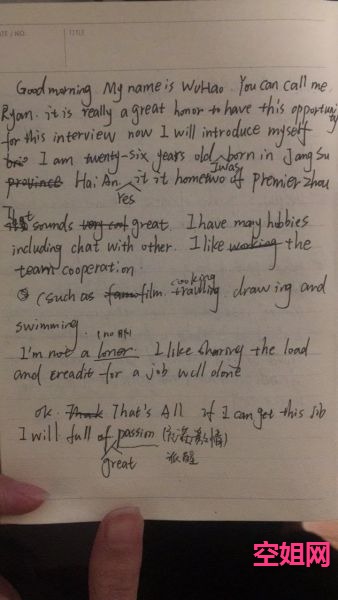 DATE / NO.
TITLE
Good morning My name is WuHao. You can call me
Ryan. it is really a great honor to have this opportunity
for this interview now I will introduce myself
I am twenty-six years old Iwas born in JangSu
province HaiAn. it it hometwo of premier zhou
Yes
It sounds very great. I have many hobbies
including chat with other. I like working the
team cooperation.
(such as film. cooking travling. drawing and
swimming.
I'm not a loner. I like sharing the load
and creadit for a job well done
ok. Thank That's All if I can get this job
I will full of passion (充满激情)
great
空姐网